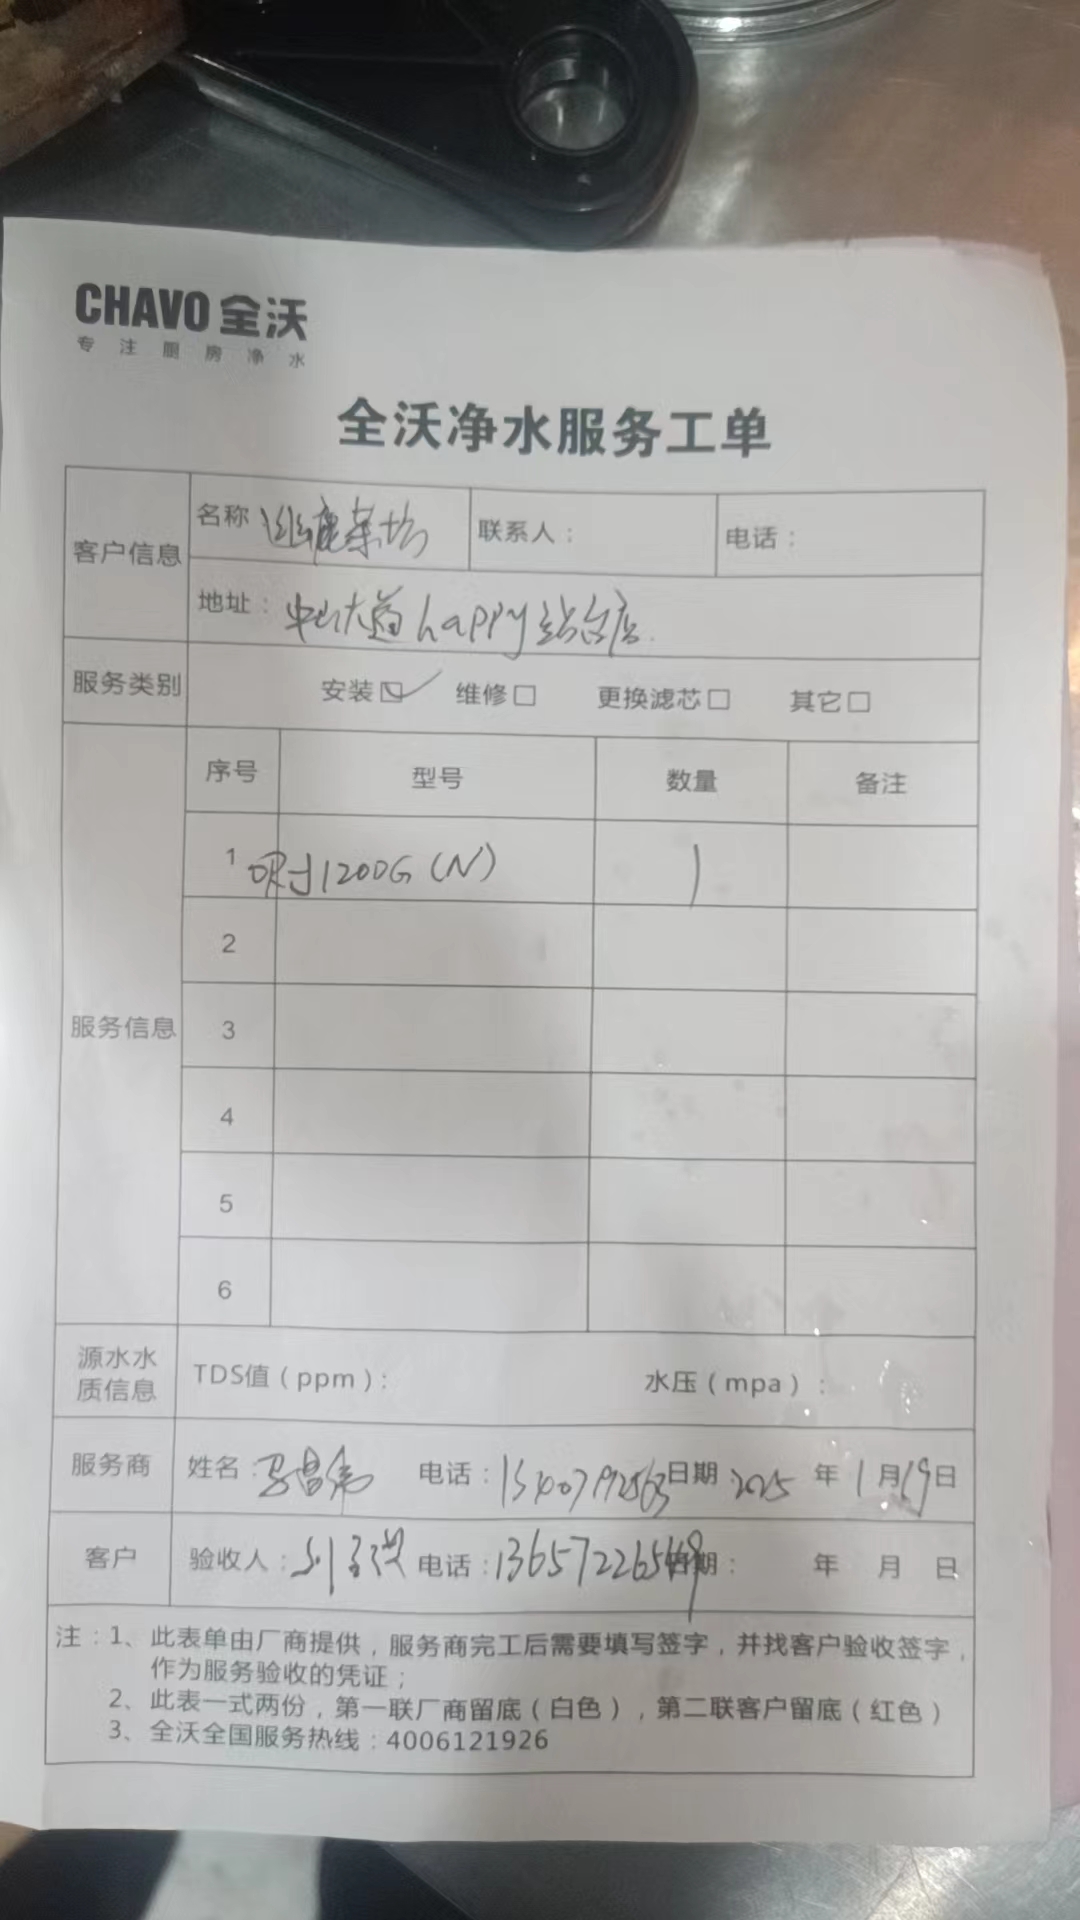 CHAVO 全沃
专注厨房净水
全沃净水服务工单
客户信息
名称
联系人：
电话：
地址：中山大道happy站台店
服务类别
安装☑ 维修□ 更换滤芯□ 其它□
服务信息
序号 型号 数量 备注
1 1200G（N） 1
2
3
4
5
6
源水水质信息
TDS值（ppm）：
水压（mpa）：
服务商
姓名： 电话： 日期：2025 年 1 月 19 日
客户
验收人： 电话： 日期： 年 月 日
注：1、此表单由厂商提供，服务商完工后需要填写签字，并找客户验收签字，
作为服务验收的凭证；
2、此表一式两份，第一联厂商留底（白色），第二联客户留底（红色）
3、全沃全国服务热线：4006121926